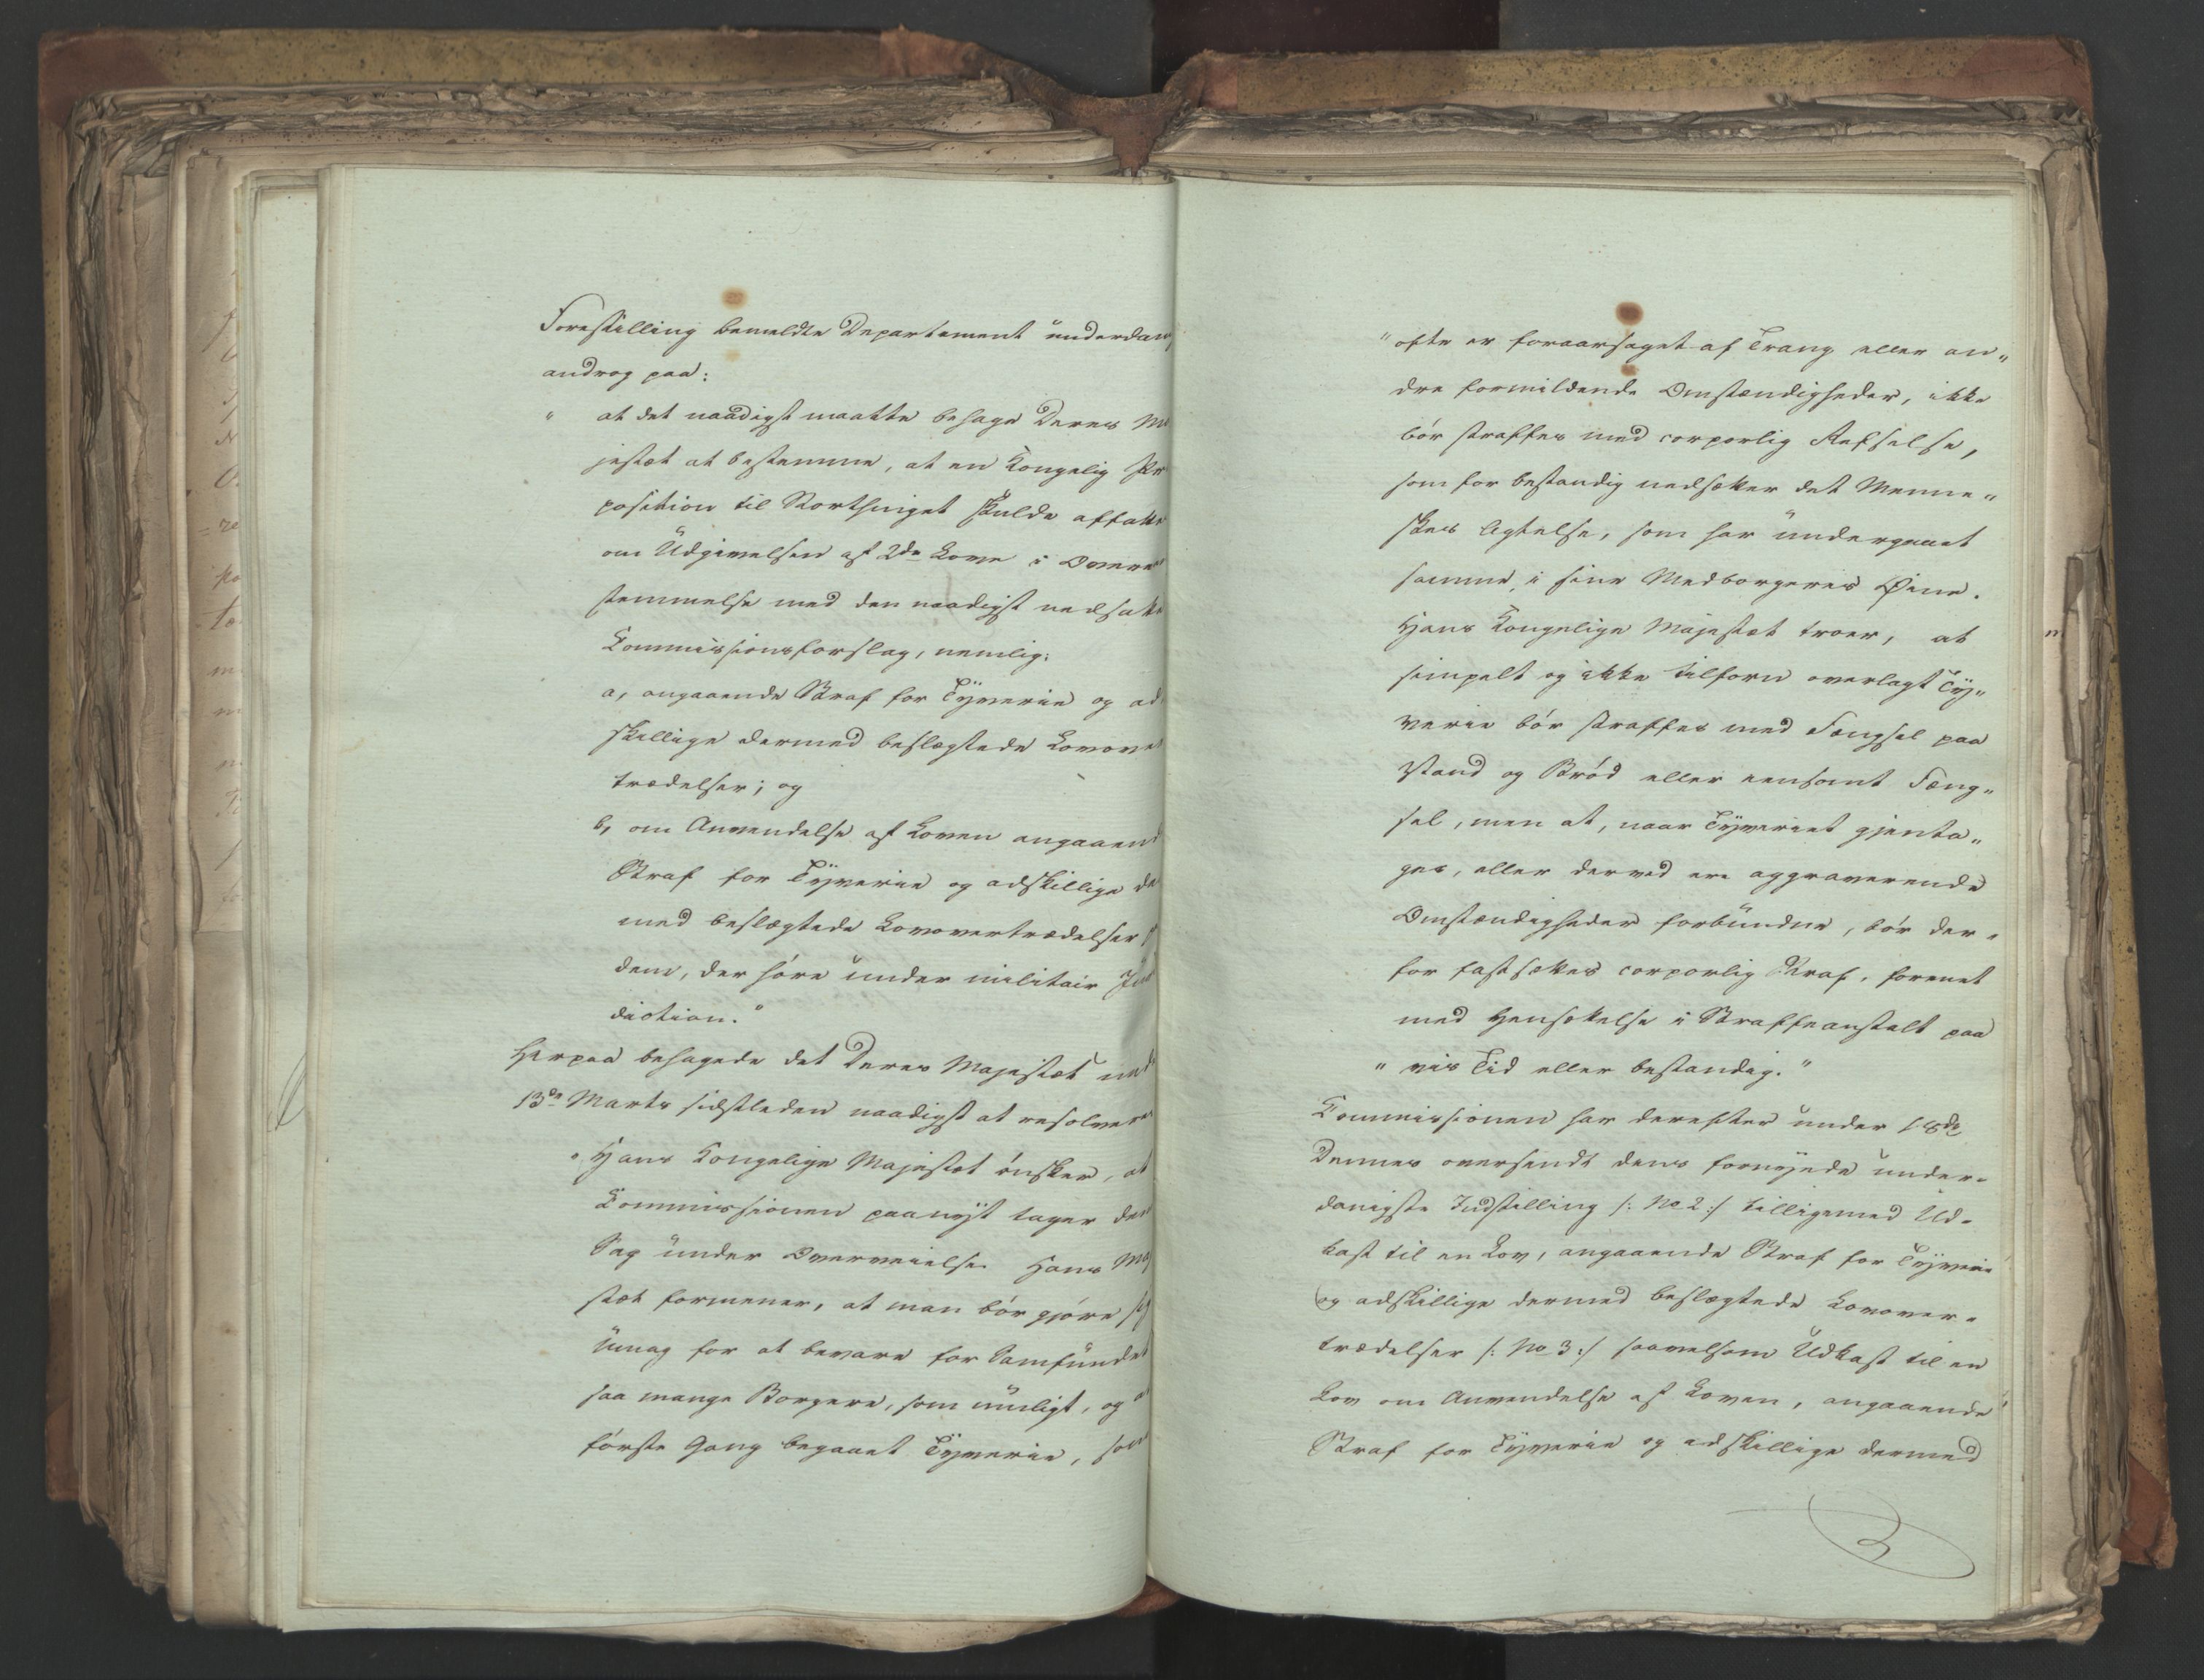 Forestilling bemeldte Departement underdan
androg paa:
" at det naadigst maatte behage Deres Ma
jestæt at bestemme, at en Kongelig Pro
position til Storthinget skulde affatte
om Udgivelsen af 2de Love i Overeens
stemmelse med den naadigst nedsatte
Commissionsforslag, nemlig:
a, angaaende Straf for Tyverie og ad
skillige dermed beslægtede Lovover
trædelser; og
b, om Anvendelse af Loven angaaend
Straf for Tyverie og adskillige der
med beslægtede Lovovertrædelser p
dem, der høre under militair Juris
diction."
Herpaa behagede det Deres Majestæt und
13de Marts sidstleden naadigst at resolvere
" Hans Kongelige Majestæt ønsker, at
Commissionen paanyt tager den
Sag under Overveielse. Hans Maj
stæt formener, at man bør gjøre sig
Umag for at bevare for Samfundet
saa mange Borgere, som muligt, og at
første Gang begaaet Tyverie, som
" ofte er foraarsaget af Trang eller an"
dre formildende Omstændigheder, ikke
bør straffes med corporlig Refselse,
som for bestandig nedsætter det Menne"
skes Agtelse, som har undergaaet
samme, i sine Medborgeres Øine.
Hans Kongelige Majestæt troer, at
simpelt og ikke tilforn overlagt Ty"
verie bør straffes med Fængsel paa
Vand og Brød eller eensomt Fæng"
sel, men at, naar Tyveriet gjenta"
ges, eller derved ere aggraverende
Omstændigheder forbundne, bør der"
for fastsættes corporlig Straf, forenet
med Hensættelse i Straffeanstalt paa
" vis Tid eller bestandig."
Commissionen har derefter under 18de
Dennes oversendt dens fornyede under"
danigste Indstilling /: No 2 :/ tilligemed Ud"
kast til en Lov, angaaende Straf for Tyverie
og adskillige dermed beslægtede Lovover"
trædelser /: No 3 :/ saavelsom Udkast til en
Lov om Anvendelse af Loven, angaaende
Straf for Tyverie og adskillige dermed